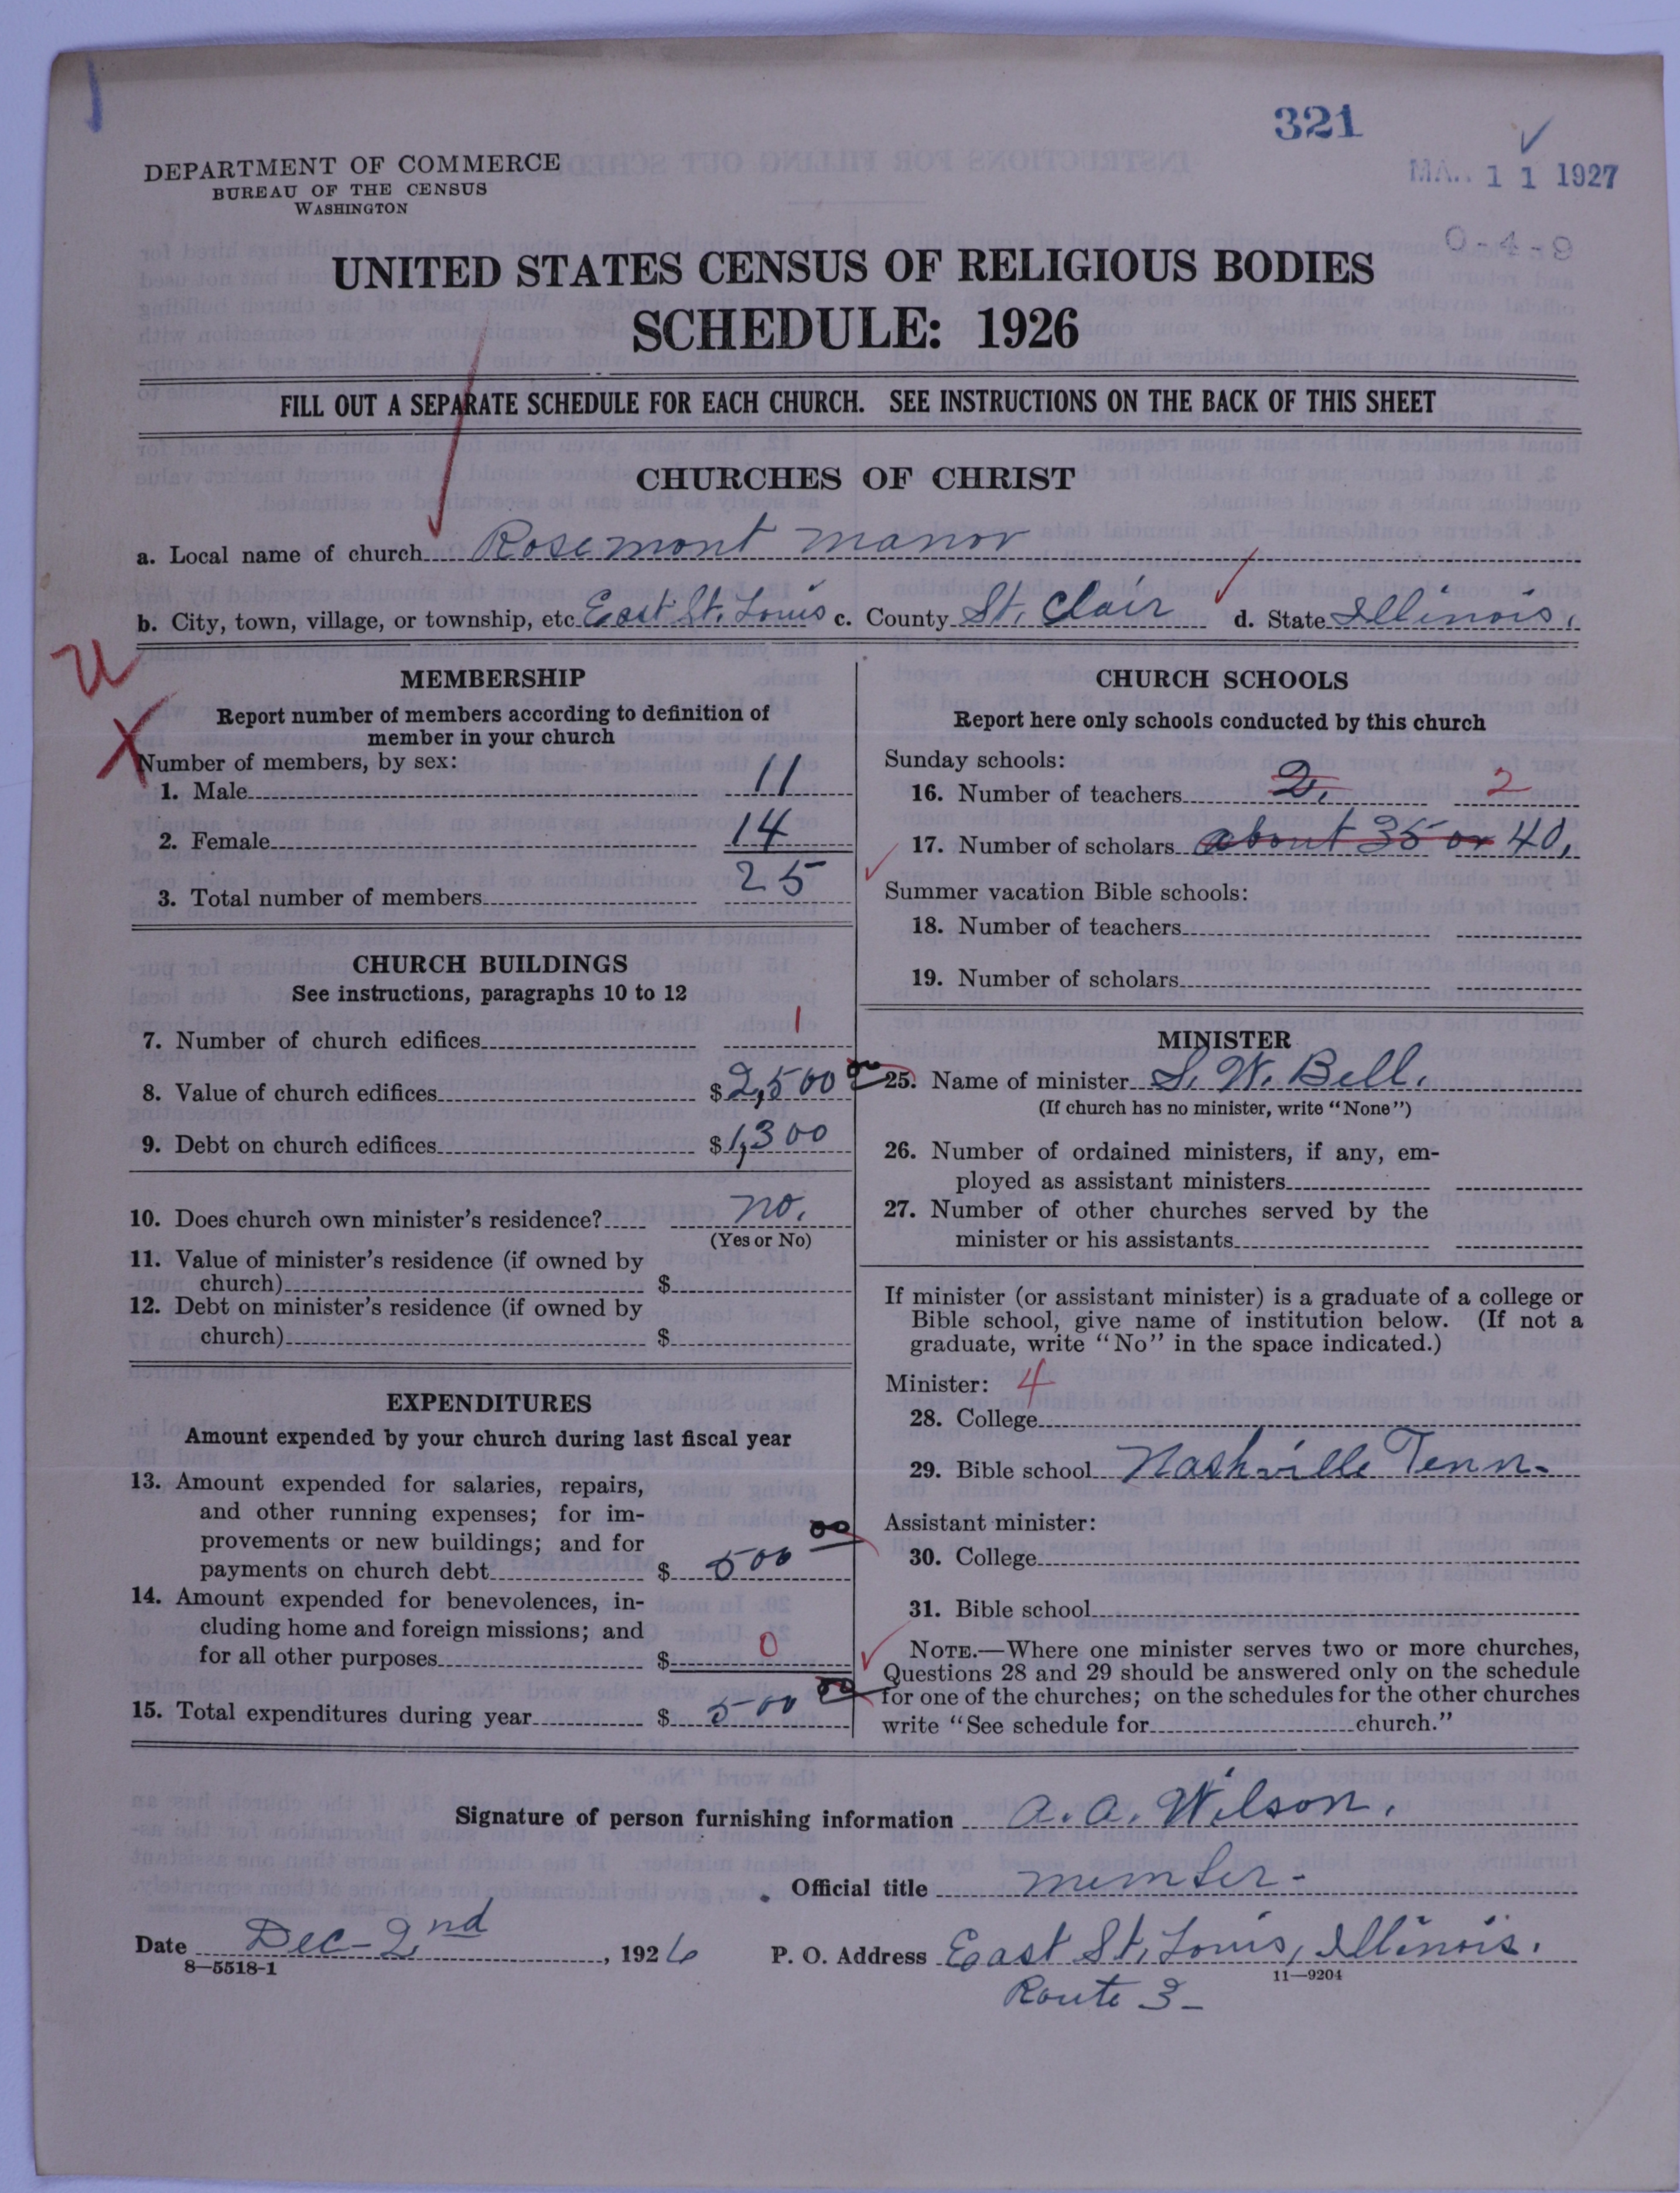 321
MAR 11 1927
0-4-9
DEPARTMENT OF COMMERCE
BUREAU OF THE CENSUS
WASHINGTON
UNITED STATES CENSUS OF RELIGIOUS BODIES
SCHEDULE: 1926
FILL OUT A SEPARATE SCHEDULE FOR EACH CHURCH. SEE INSTRUCTIONS ON THE BACK OF THIS SHEET
CHURCHES OF CHRIST
a. Local name of church Rosemont Manor
b. City, town, village, or township, etc East St. Louis c. County St. Clair d. State Illinois.
U
X
MEMBERSHIP
Report number of members according to definition of
member in your church
Number of members, by sex:
1. Male 11
2. Female 14
3. Total number of members 25
CHURCH BUILDINGS
See instructions, paragraphs 10 to 12
7. Number of church edifices 1
8. Value of church edifices $2,500 00
9. Debt on church edifices $1,300
10. Does church own minister's residence? no.
(Yes or No)
11. Value of minister's residence (if owned by
church) $
12. Debt on minister's residence (if owned by
church) $
EXPENDITURES
Amount expended by your church during last fiscal year
13. Amount expended for salaries, repairs,
and other running expenses; for im-
provements or new buildings; and for
payments on church debt $ 500 00
14. Amount expended for benevolences, in-
cluding home and foreign missions; and
for all other purposes $ 0
15. Total expenditures during year $ 500 00
CHURCH SCHOOLS
Report here only schools conducted by this church
Sunday schools:
16. Number of teachers 2. 2
17. Number of scholars about 35 or 40.
Summer vacation Bible schools:
18. Number of teachers
19. Number of scholars
MINISTER
25. Name of minister S. W. Bell.
(If church has no minister, write "None")
26. Number of ordained ministers, if any, em-
ployed as assistant ministers
27. Number of other churches served by the
minister or his assistants
If minister (or assistant minister) is a graduate of a college or
Bible school, give name of institution below. (If not a
graduate, write "No" in the space indicated.)
Minister: 4
28. College
29. Bible school Nashville Tenn-
Assistant minister:
30. College
31. Bible school
NOTE.—Where one minister serves two or more churches,
Questions 28 and 29 should be answered only on the schedule
for one of the churches; on the schedules for the other churches
write "See schedule for church."
Signature of person furnishing information A. A. Wilson.
Official title member-
Date Dec-2nd, 1926 P. O. Address East St. Louis, Illinois.
8—5518-1 11—9204
Route 3-